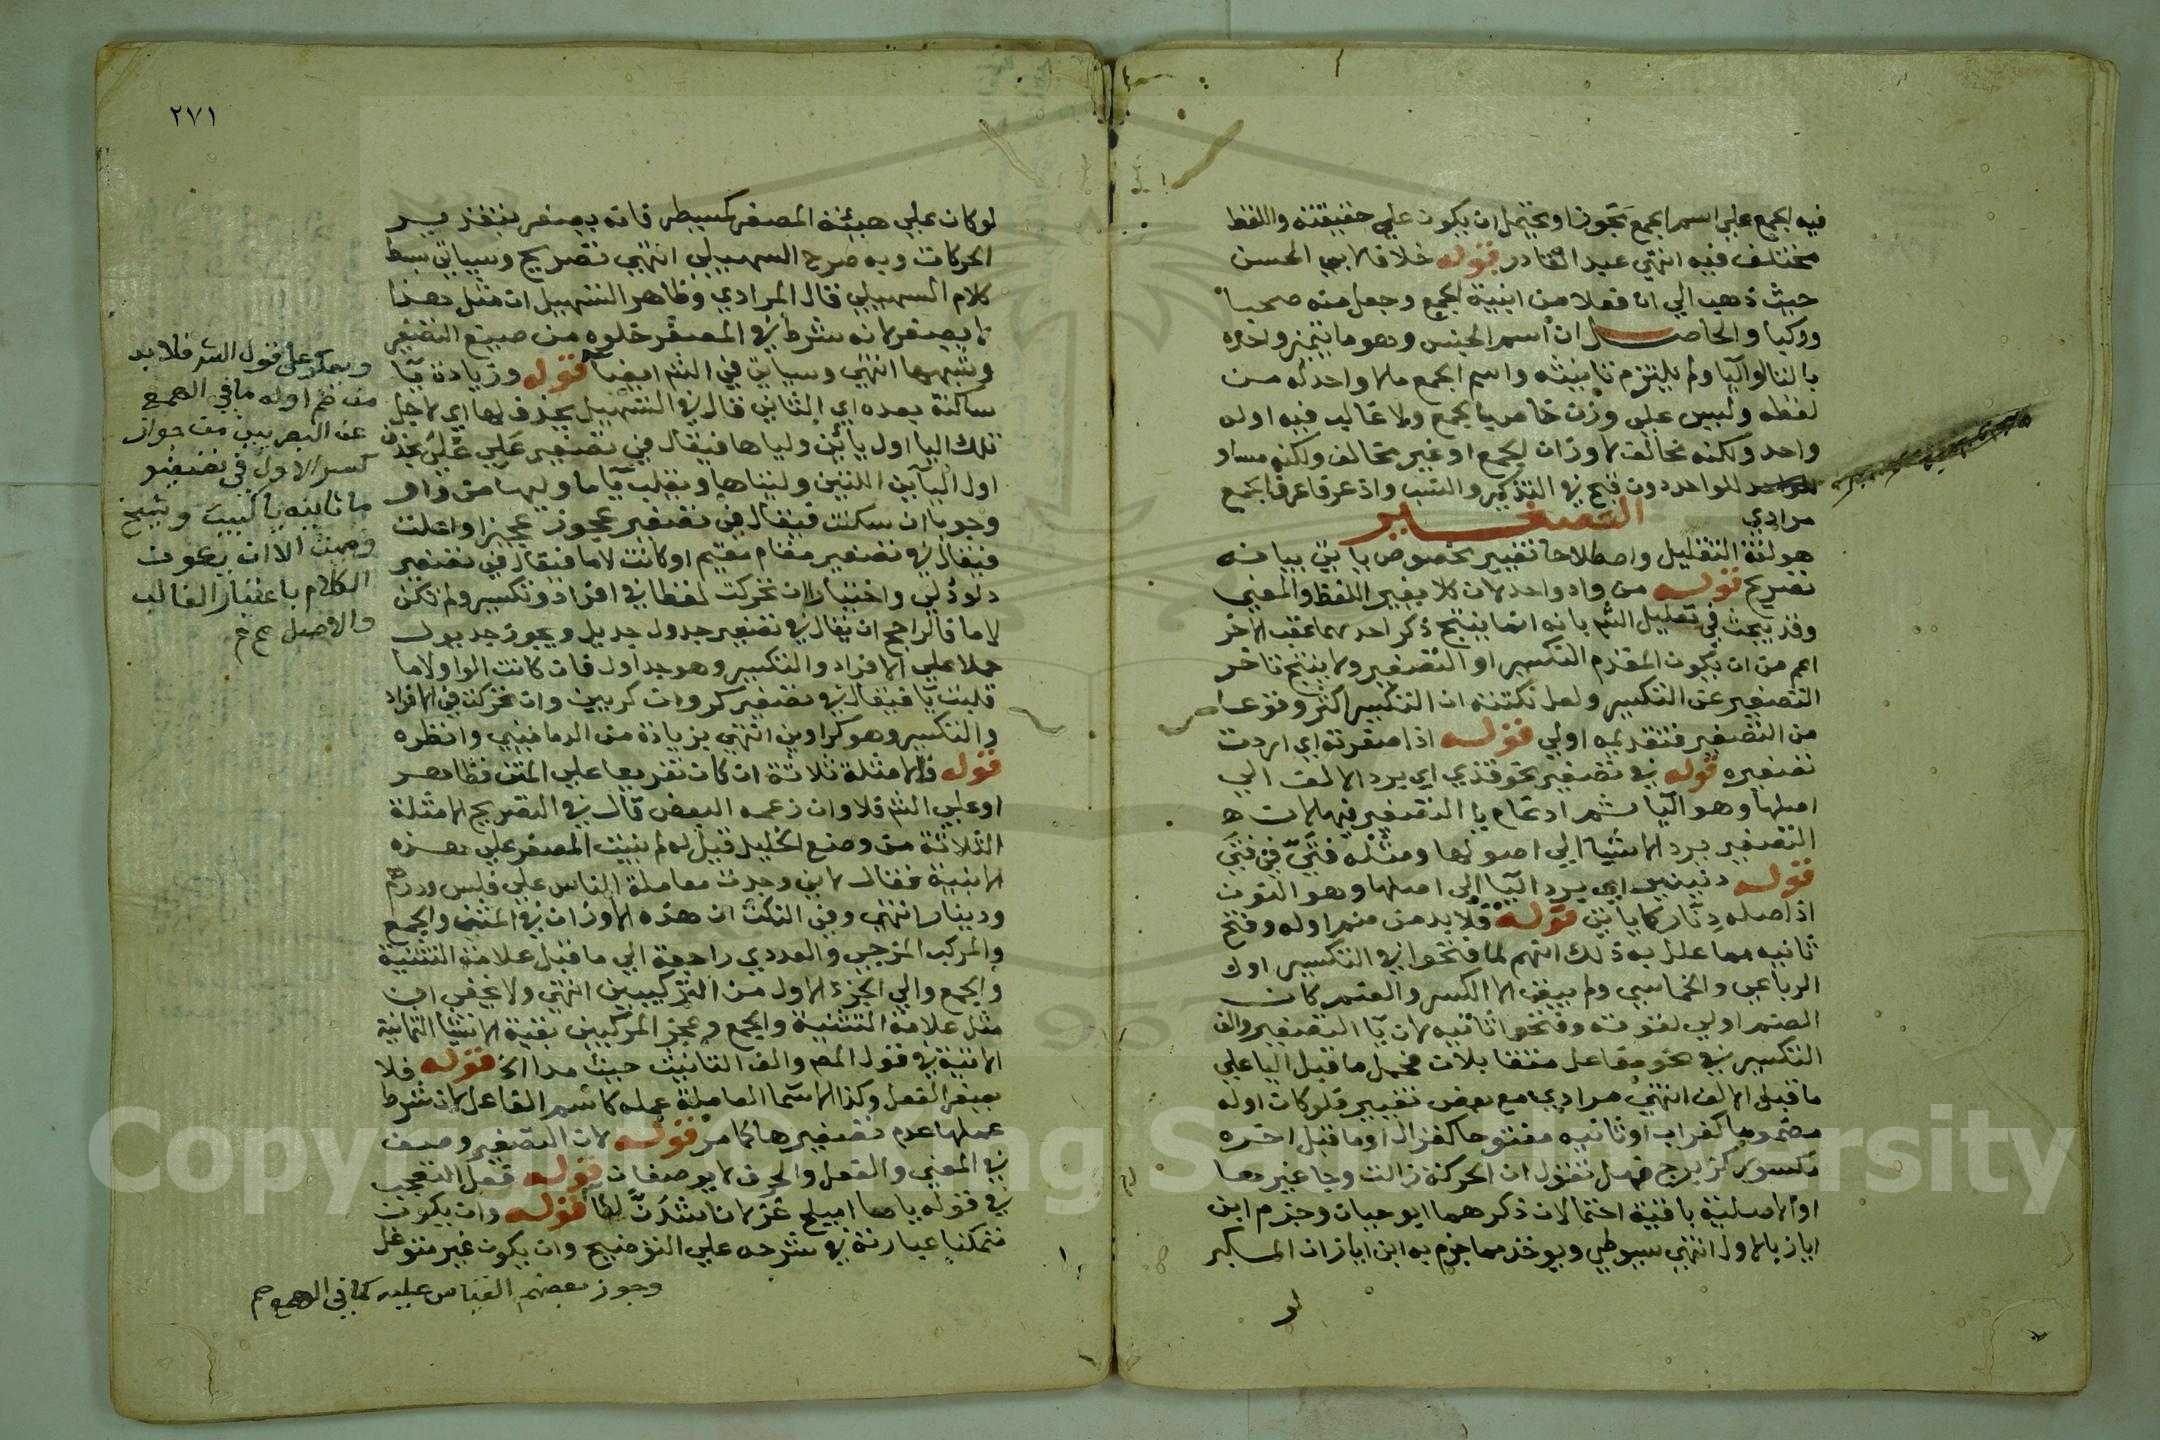 فيه الجمع علي اسم الجمع تجوزا ويحتمل ان يكون علي حقيقته واللفظ
مختلف فيه انتهي عبد القادر قوله خلافا لابي الحسن
حيث ذهب الي ان فعلا من ابنية الجمع وجعل منه صحبا
وركبا والحاصل ان اسم الجنس وهو ما يتميز واحده
بالتا او اليا ولم يلتزم تانيثه واسم الجمع ما لا واحد له من
لفظه وليس علي وزن خاص بالجمع ولا غالب فيه او له
واحد ولكنه مخالف لاوزان الجمع او غير مخالف ولكنه مساو
للواحد دون قبح في التذكير والنسب واذ عرفا عرف الجمع
مرادي
التصغير
هو لغة التقليل واصطلاحا تغيير مخصوص ياتي بيانه
تصريح قوله من واد واحد لان كلا يغير اللفظ والمعني
وقد يبحث في تعليل الشم بانه انما ينتج ذكر احدهما عقب الاخر
اعم من ان يكون المقدم التكسير او التصغير ولا ينتج تاخر
التصغير عن التكسير ولعل نكتته ان التكسير اكثر وقوعا
من التصغير فتقديمه اولي قوله اذا صغرته اي اردت
تصغيره قوله في تصغير نحو قذي اي يرد الالف الي
اصلها وهو اليا ثم ادغام يا التصغير فيها لان
التصغير يرد الاشيا الي اصولها ومثله فتي في فتي
قوله دنينير اي يرد اليا الي اصلها وهو النون
اذ اصله دنار كما ياتي قوله فلا بد من ضم اوله وفتح
ثانيه مما علل به ذلك انهم لما فتحوا في التكسير اول
الرباعي والخماسي ولم يبق الا الكسر والضم كان
الضم اولي لقوته وفتحوا ثانيه لان يا التصغير والف
التكسير في نحو مفاعل متقابلان فحمل ما قبل اليا علي
ما قبل الالف انتهي مرادي مع بعض تغيير فلو كان اوله
مضموما كغراب او ثانيه مفتوحا كغزال او ما قبل اخره
مكسور كزبرج فهل تقول ان الحركة زالت وجا غيرها
او الاصلية باقية احتمالان ذكرهما ابو حيان وجزم ابن
اياز بالاول انتهي سيوطي ويوخذ مما جزم به ابن اياز ان المكبر
لو
٢٧١
لو كان علي هيئة المصغر كمسيطر فانه يصغر بتقدير
الحركات وبه صرح السهيلي انتهي تصريح وسياتي بسط
كلام السهيلي قال المرادي وظاهر التسهيل ان مثل هذا
لا يصغر لانه شرط في المصغر خلوه من صيغ التصغير
وشبهها انتهي وسياتي في الشم ايضا قوله وزيادة يا
ساكنة بعده اي الثاني قال في التسهيل يحذف لها اي لاجل
تلك اليا اول يائين ولياها فيقال في تصغير علي علي بحذف
اول اليائين اللتين وليتاها وتقلب يا ما وليها من واو
وجوبا ان سكنت فيقال في تصغير عجوز عجيز او اعلت
فيقال في تصغير مقام مقيم او كانت لاما فيقال في تصغير
دلو دلي واختيارا ان تحركت لفظا في افراد وتكسير ولم تكن
لاما فالراجح ان يقال في تصغير جدول جديل ويجوز جديول
حملا علي الافراد والتكسير وهو جداول فان كانت الواو لاما
قلبت يا فيقال في تصغير كروان كريين وان تحركت في الافراد
والتكسير وهو كراوين انتهي بزيادة من الدماميني وانظره
قوله فالامثلة ثلاثة ان كان تفريعا علي المتن فظاهر
او علي الشم فلا وان زعمه البعض قال في التصريح الامثلة
الثلاثة من وضع الخليل قيل له لم بنيت المصغر علي هذه
الابنية فقال لاني وجدت معاملة الناس علي فلس ودرهم
ودينار انتهي وفي النكت ان هذه الاوزان في المثني والجمع
والمركب المزجي والعددي راجعة الي ما قبل علامة التثنية
والجمع والي الجزء الاول من التركيبين انتهي ولا يخفي ان
مثل علامة التثنية والجمع وعجز المركبين بقية الاشيا الثمانية
الاتية في قول المص والف التانيث حيث مدا الخ قوله فلا
يصغر الفعل وكذا الاسما العاملة عمله كاسم الفاعل لان شرط
عملها عدم تصغيرها كما مر قوله لان التصغير وصف
في المعني والفعل والحرف لا يوصفان قوله فعل التعجب
في قوله ياما اميلح غزلانا شدن لنا قوله وان يكون
متمكنا عبارته في شرحه علي التوضيح وان يكون غير متوغل
وجوز بعضهم القياس عليه كما في الهمع صح
ويعكر علي قول الشم فلا بد
من ضم اوله ما في الهمع
عن البصريين من جواز
كسر الاول في تصغير
ما ثانيه يا كبيت وشيخ
وميت الا ان يكون
الكلام باعتبار الغالب
والاصل